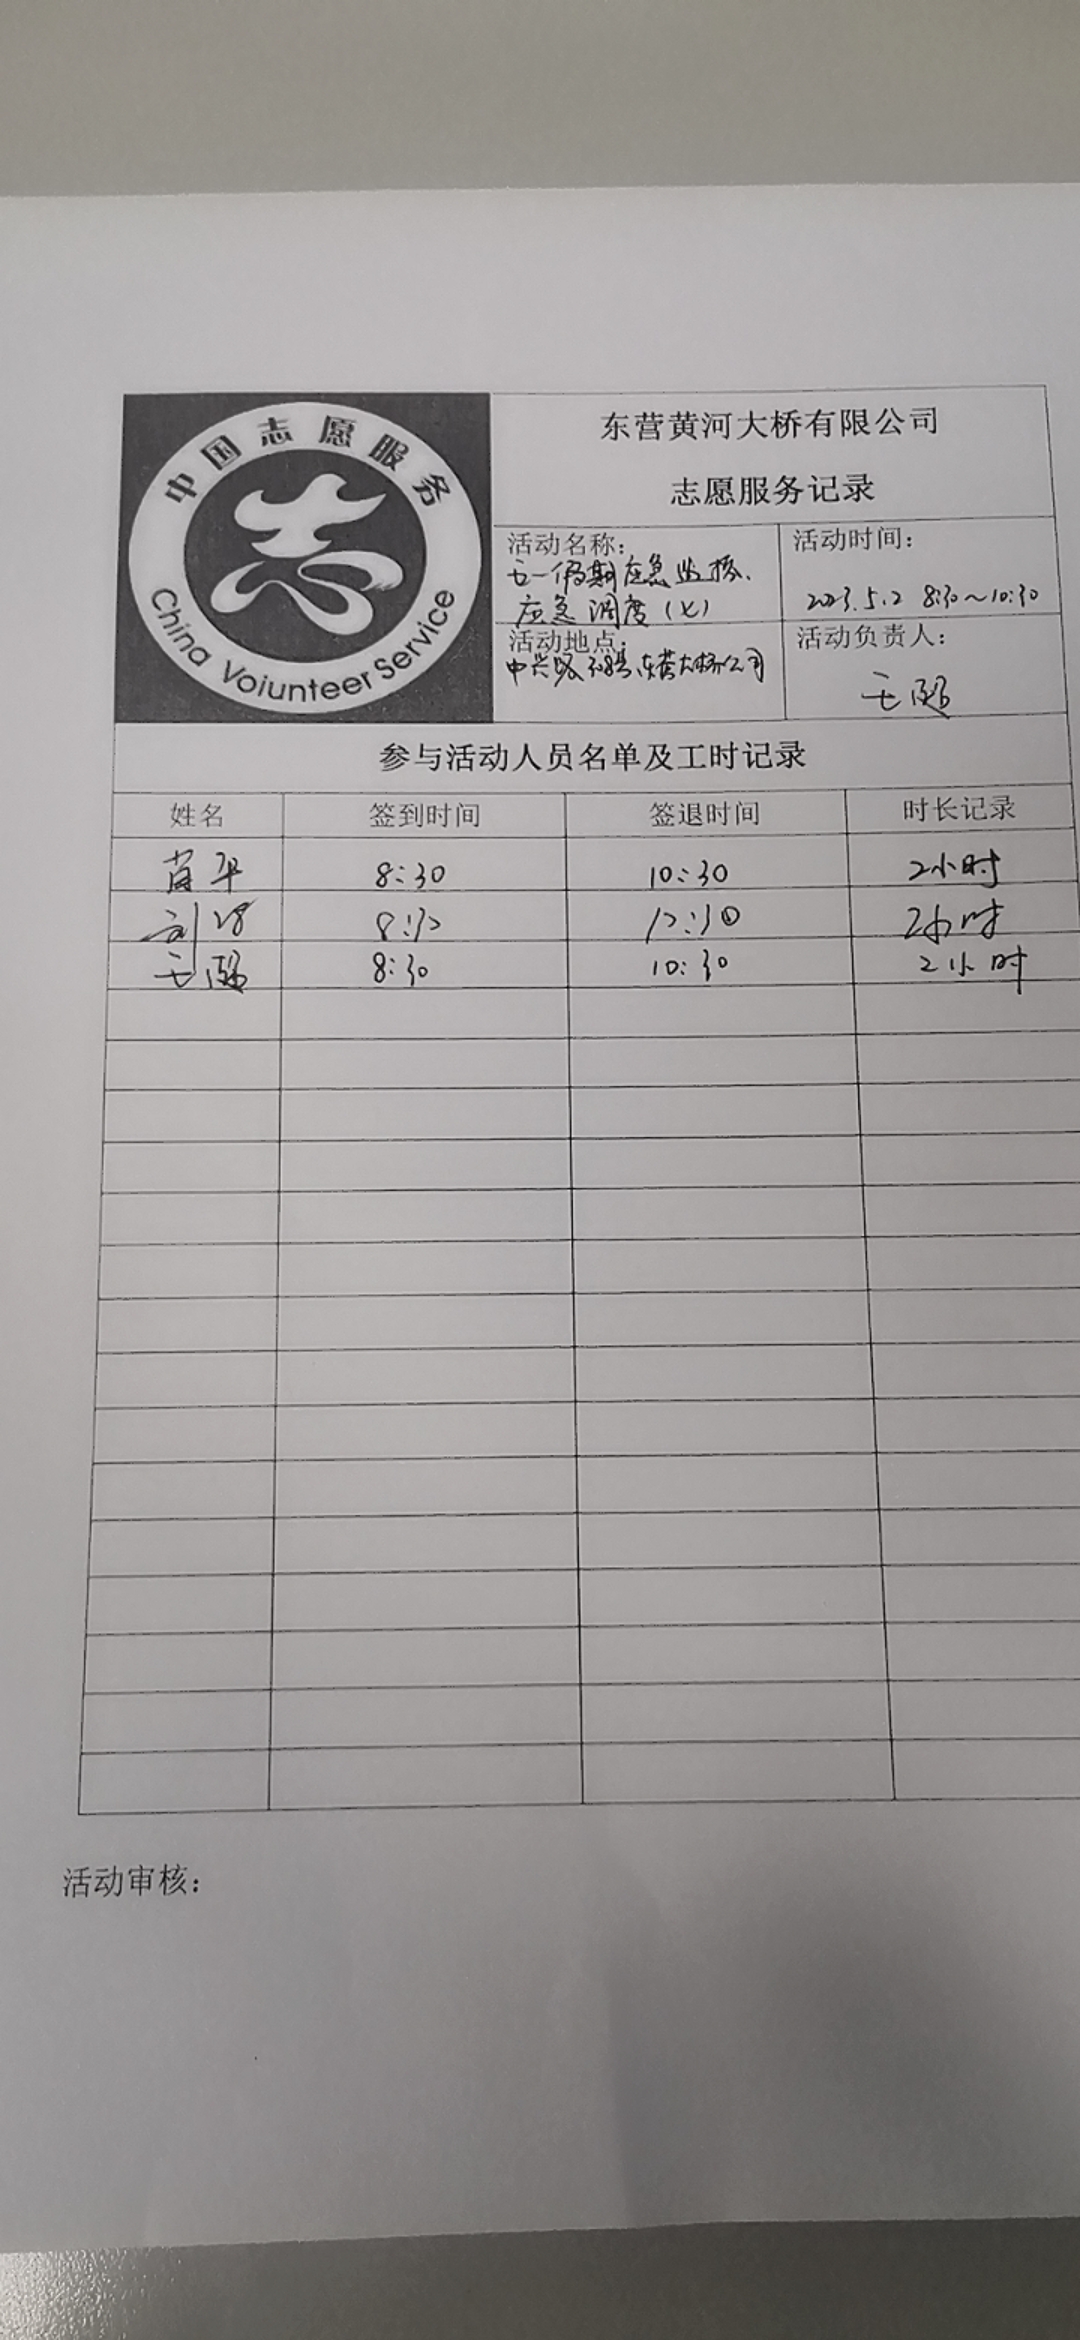 中国志愿服务
China Voiunteer Service
东营黄河大桥有限公司
志愿服务记录
活动名称：
五一假期应急监控、
应急调度（七）
活动时间：
2023.5.2 8:30~10:30
活动地点：
东营大桥公司
活动负责人：
王
参与活动人员名单及工时记录
姓名 签到时间 签退时间 时长记录
肖平 8:30 10:30 2小时
刘 8:30 10:30 2小时
王 8:30 10:30 2小时
活动审核：